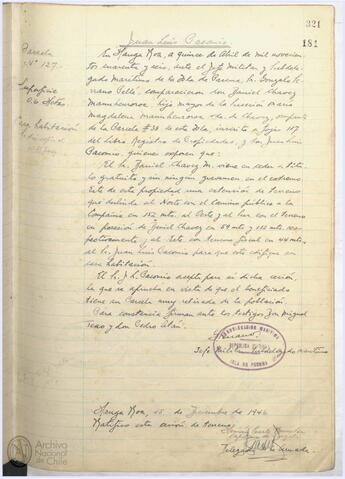 321
182
Juan Luis Casonio
Parcela
N° 127.
Superficie
0.6 Hetas.
En Hanga Roa, a quince de Abril de mil novecien-
tos cuarenta y seis, ante el Jefe Militar y Subdele-
gado Marítimo de la Isla de Pascua, Sr. Gonzalo
comparecieron don Daniel Chavez
hijo mayor de la Sucesión María
Magdalena de Chavez,
de la Parcela # 38 de esta Isla, inscrita a fojas 107
del Libro Registro de Propiedades, y don Juan Luis
Casonio, quienes exponen que:
El Sr. Daniel Chavez M. viene en ceder a títu-
lo gratuito y sin ningún gravamen en el extremo
Este de esta propiedad una extensión de terreno
que deslinda al Norte con el camino público a la
Compañía en 152 mts. al Oeste y al Sur con el terreno
en posesión de Daniel Chavez en 54 mts y 132 mts. res-
pectivamente; al Este con terreno fiscal en 44 mts.
al Sr. Juan Luis Casonio para que éste edifique en
ella habitación.
El Sr. J. L. Casonio acepta para sí dicha cesión
la que se aprueba en vista de que el beneficiado
tiene su Parcela muy retirada de la población.
Para constancia firman ante los testigos Don Miguel
Teao y don Pedro Atán.
SUBDELEGACION MARITIMA
REPUBLICA DE CHILE
ISLA DE PASCUA
Jefe Militar y Subdelegado Marítimo
Hanga Roa, 15 de Diciembre de 1946
Ratifico esta cesión de terreno.
Delegado de la Armada.
Archivo
Nacional
de Chile